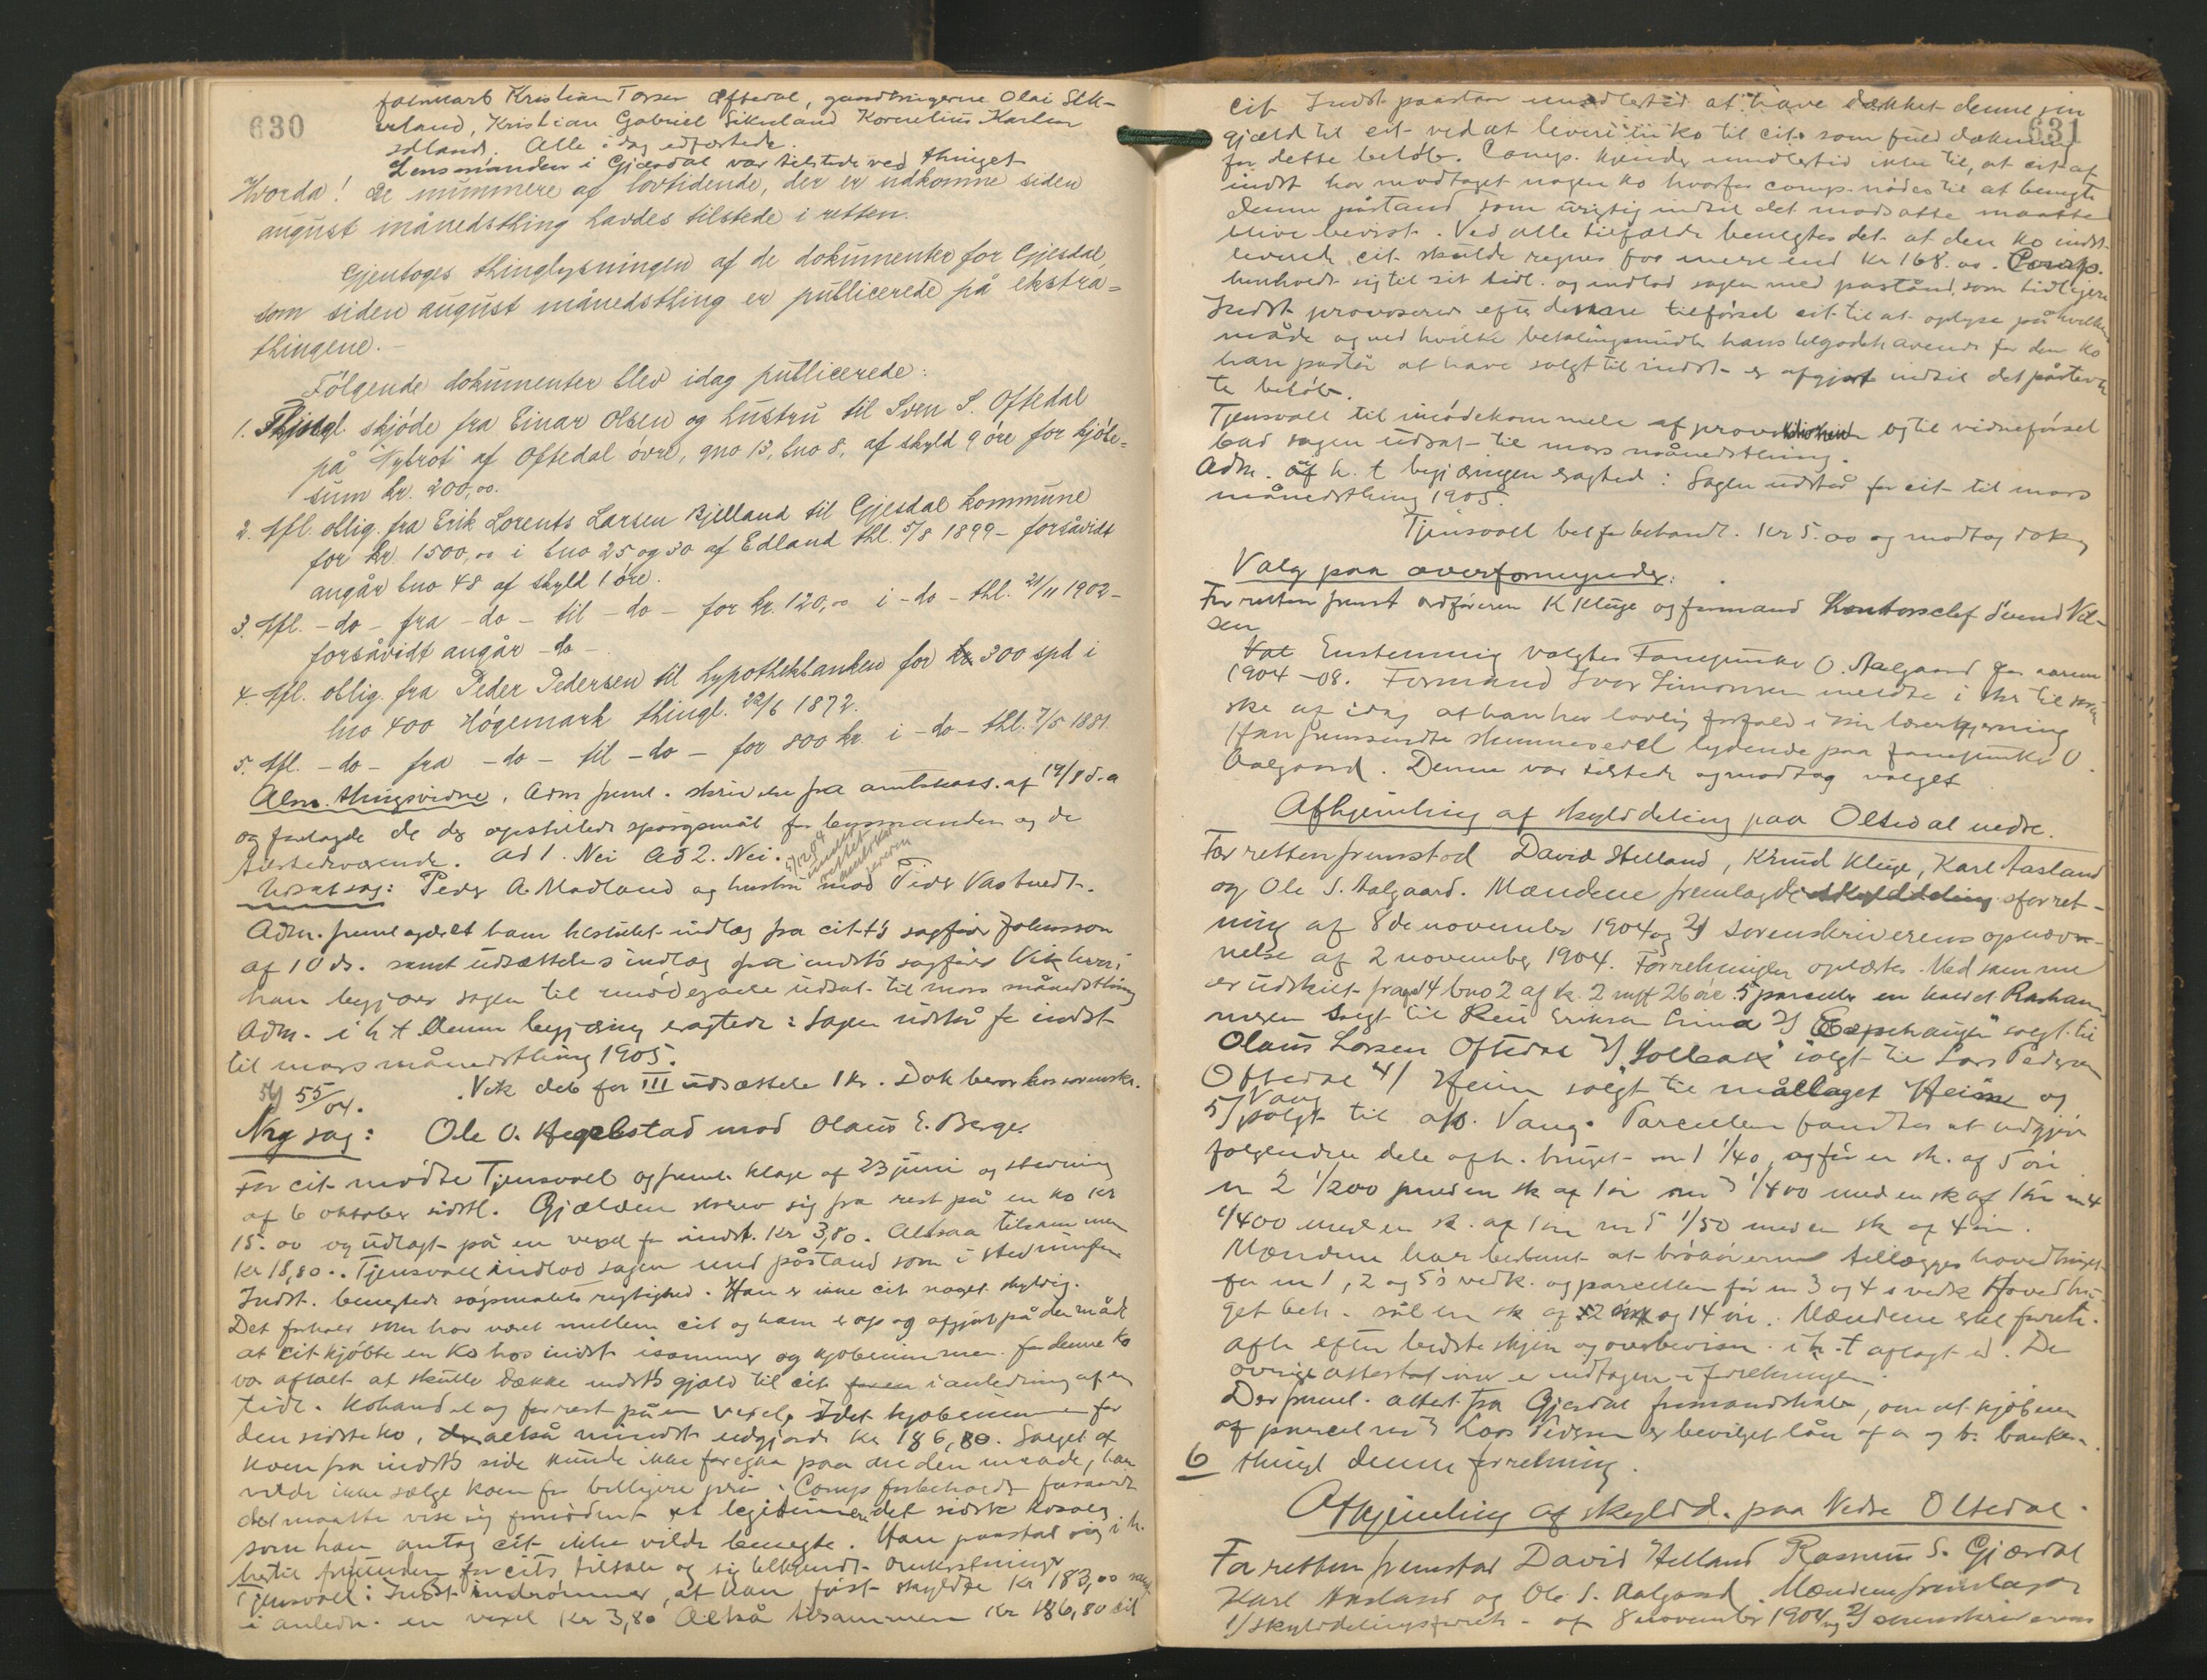 630
Kristian Torsen Oftedal, gaardbrugerne Olai Sik-
veland, Kristian Gabriel Sikveland Kornelius Karlsen
Alle idag edfæstede.
Lensmanden i Gjæsdal var tilstede ved thinget
Hvorda! De nummere af lovtidende, der er udkomne siden
august månedsthing havdes tilstede i retten.
Gjentoges thinglysningen af de dokumenter for Gjesdal,
som siden august månedsthing er publicerede på ekstra-
thingene.-
Følgende dokumenter blev idag publicerede:
1. skjøde fra Einar Olsen og hustru til Sven S. Oftedal
på "Nybrot" af Oftedal øvre, gno 13, bno 8, af skyld 9 øre for kjøbe-
sum kr. 200,00.
2. Afl. oblig. fra Erik Lorents Larsen Bjelland til Gjesdal kommune
for kr. 1500,00 i bno 25 og 30 af Edland thl. 5/8 1899 - forsåvidt
angår bno 48 af skyld 1 øre.
3. Afl. - do - fra - do - til - do - for kr. 120,00 i - do - thl. 21/11 1902 -
forsåvidt angår - do -
4. Afl. oblig. fra Peder Pedersen til hypothekbanken for kr 300 spd i
lno 400 Høgemark thingl. 22/6 1872.
5. Afl. - do - fra - do - til - do - for 800 kr. i - do - thl. 7/5 1881.
Alm. thingsvidne. Adm freml. skrivelse fra amtskass. af 19/8 d.a
og forelagde de der opstillede spørgsmål for lensmanden og de
tilstedeværende. Ad 1. Nei Ad 2. Nei.
Udsat sag: Peder A. Madland og hustru mod Peder Vasbuedt.
Adm. fremlagde et ham tilstillet indlæg fra cit-t's sagfører Johnsson
af 10 ds. samt udsættelsindlæg fra indst's sagfører Vik hvori
han begjærer sagen til imødegaaelse udsat til mars månedsthing
Adm. i h t denne begjæring eragtede: Sagen udstår for indst
til mars månedsthing 1905.
Vik deb for III udsættelse 1 kr. Dok beror hos sorenskr.
55/04.
Ny sag: Ole O. Hegelstad mod Olaus E. Berge.
For cit. mødte Tjensvoll og freml. klage af 23 juni og stevning
af 6 oktober sidstl. Gjælden skrev sig fra rest på en ko kr
15.00 og udlagt på en vexel for indst. kr 3,80. Altsaa tilsammen
kr 18,80. Tjensvoll indlod sagen med påstand som i stevningen
Indst. benegtede søgsmålets rigtighed. Han er ikke cit noget skyldig.
Det forhold som har været mellem cit og ham er op og afgjort på den måde
at cit kjøbte en ko hos indst isommer og kjøbesummen for denne ko
var aftalt at skulle dække indst's gjæld til cit i anledning af en
tidl. kohandel og for rest på en vexel, idet kjøbesummen for
den sidste ko, altså mindst udgjorde kr 186,80. Salget af
koen fra indst's side kunde ikke foregaa paa anden maade, han
vilde ikke sælge koen for billigere pris. Comp forbeholdt forsaavidt
det maatte vise sig fornødent at legitimere det sidste kosalg
som han antog cit ikke vilde benegte. Han paastod sig i h.
hertil frifunden for cits tiltale og sig tilkjendt omkostninger
Tjensvoll: Indst indrømmer, at han først skyldte kr 183,00
i anledn. en vexel kr 3,80 Altså tilsammen kr 186,80 til
631
cit Indst paastaar imidlertid at have dækket denne sin
gjæld til cit ved at levere en ko til cit som fuld dækning
for dette beløb. Comp. kjender imidlertid ikke til, at cit af
indst har modtaget nogen ko hvorfor comp. nødes til at benegte
denne påstand som urigtig indtil det modsatte maatte
blive bevist. Ved alle tilfælde benegtes det at den ko indst
leverede cit skulde regnes for mere end kr 168.00. Comp.
henholdt sig til sit tidl. og indlod sagen med påstand som tidligere
Indst provoserer efter denne tilførsel cit til at oplyse på hvilken
måde og ved hvilke betalingsmidler hans tilgodehavende for den ko
han påstår at have solgt til indst er afgjort indtil det påstevn-
te beløb.
Tjensvoll til imødekommelse af provokationen og til vidneførsel
bad sagen udsat til mars månedsthing.
Adm. i h. t begjæringen eragted: Sagen udstår for cit til mars
månedsthing 1905.
Tjensvoll bet for behandl. kr 5.00 og modtog dok
Valg paa overformynder:
For retten fremst ordføreren K Kluge og formand Kontorchef Svend Nil-
sen
Enstemmig valgtes O. Aalgaard for aarene
1904-08. Formand Ivar Simonsen meldte i skr til
af idag at han har lovlig forfald i sin lærergjerning
Han fremsendte stemmeseddel lydende paa O.
Aalgaard. Denne var tilstede og modtog valget
Afhjemling af skylddeling paa Oltedal nedre.
For retten fremstod David Helland, Knud Kluge, Karl Aasland
og Ole S. Aalgaard. Mændene fremlagde skylddelingsforret-
ning af 8de november 1904 og 2/ Sorenskriverens opnæv-
nelse af 2 november 1904. Forretningen oplæstes. Ved samme
er udskilt fra gno 4 bno 2 af sk. 2 mrk 26 øre 5 parceller en kaldet
solgt til Eriksen 2/ solgt til
Olaus Larsen Oftedal 3/ "Solbakk" solgt til Lars Pedersen
Oftedal 4/ Heim solgt til mållaget "Heim" og
5/ Vang solgt til Vang. Parcellerne fandtes at udgjøre
følgende dele af h. bruget no 1 1/40, og får en sk. af 5 øre
no 2 1/200 med en sk af 1 øre no 3 1/400 med en sk af 1 øre no 4
1/400 med en sk. af 1 øre no 5 1/50 med en sk af 4 øre.
Mændene har bestemt at brøkørerne tillægges hovedbruget
for no 1, 2 og 5's vedk. og parcellen for no 3 og 4's vedk Hovedbru-
get beh. såle en sk af 2 mrk og 14 øre. Mændene forretn.
afh efter bedste skjøn og overbevisn. i h. t aflagt ed. De
øvrige er indtagen i forretningen.
Der freml. attest fra Gjesdal formandskab, om at kjøberen
af parcel no 3 Lars Pedersen er bevilget lån af a og b. banken.
6 thingl denne forretning.
Afhjemling af skyldd. paa Nedre Oltedal.
For retten fremstod David Helland Rasmus S. Gjesdal
Karl Aasland og Ole S. Aalgaard. Mændene fremlagde
1/ skylddelingsforretn. af 8 november 1904 og 2/ sorenskriverens